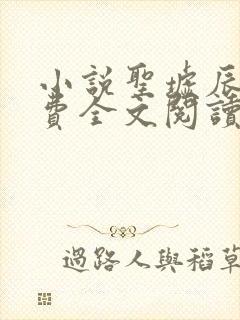 小說聖墟辰
費全文閱讀
過路人與稻草